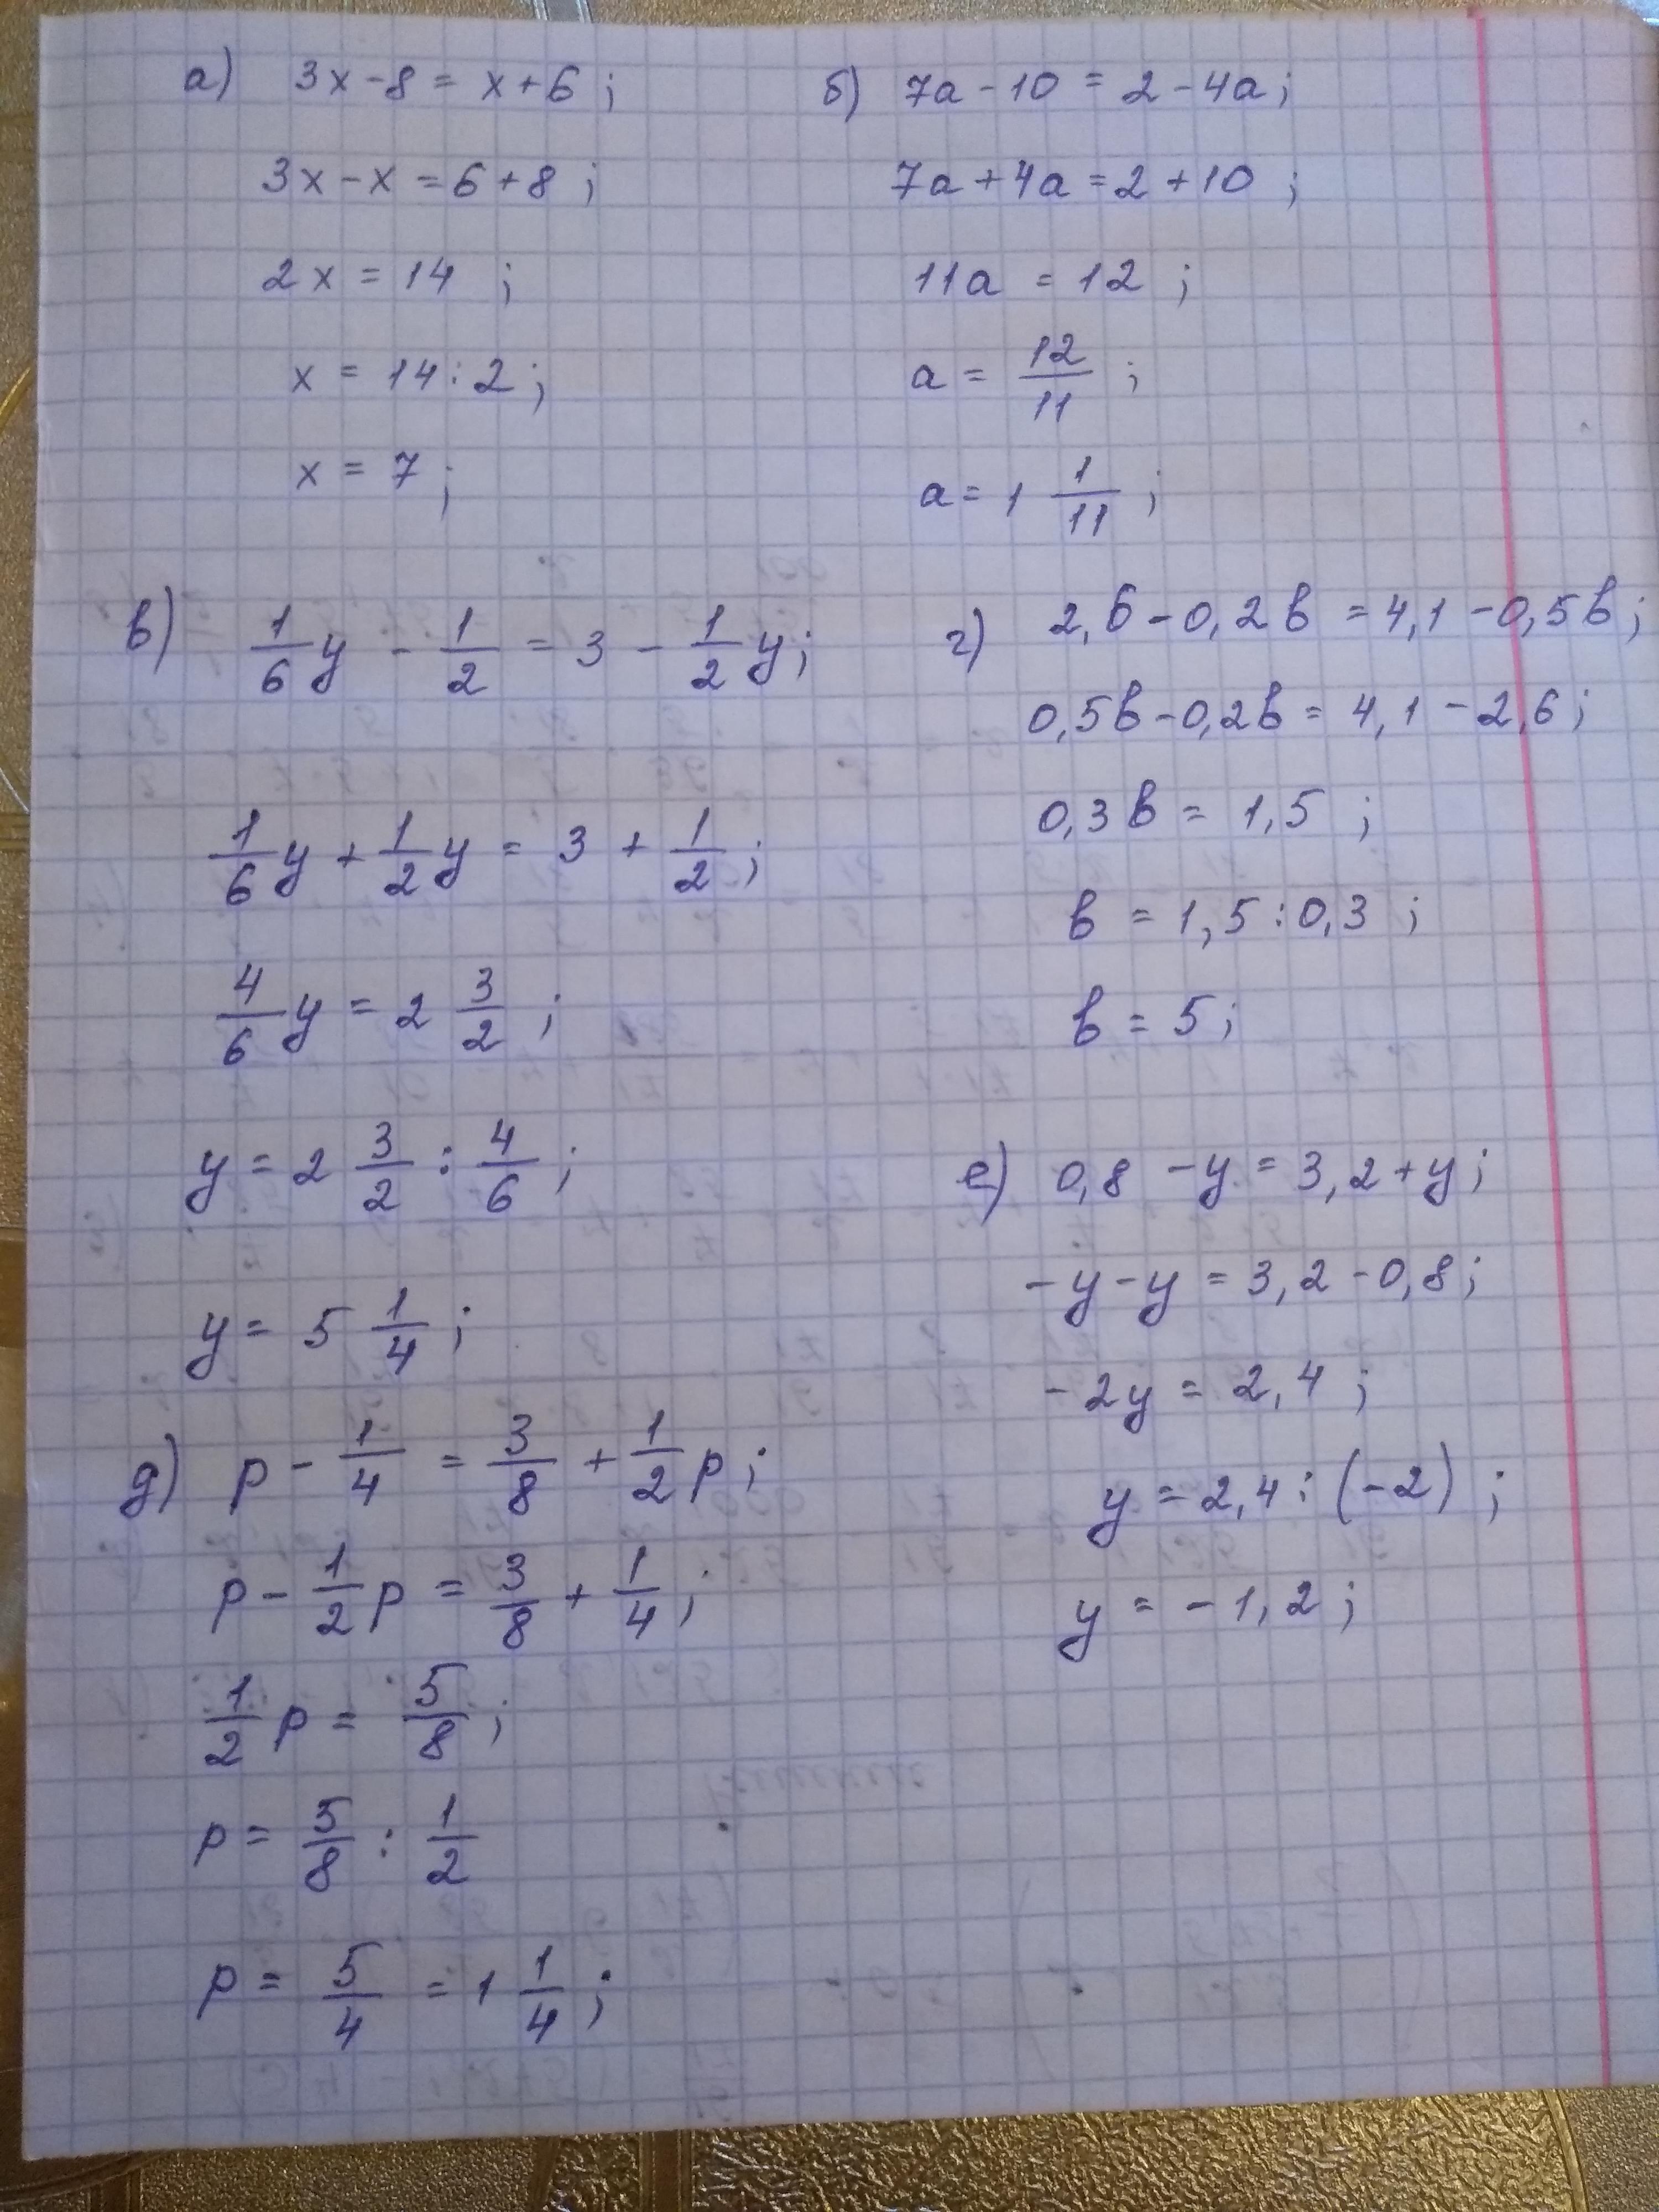 а) 3x - 8 = x + 6 ;
3x - x = 6 + 8 ;
2x = 14 ;
x = 14 : 2 ;
x = 7 ;
б) 7a - 10 = 2 - 4a ;
7a + 4a = 2 + 10 ;
11a = 12 ;
a = 12/11 ;
a = 1 1/11 ;
в) 1/6 y - 1/2 = 3 - 1/2 y ;
1/6 y + 1/2 y = 3 + 1/2 ;
4/6 y = 2 3/2 ;
y = 2 3/2 : 4/6 ;
y = 5 1/4 ;
г) 2,6 - 0,2b = 4,1 - 0,5b ;
0,5b - 0,2b = 4,1 - 2,6 ;
0,3b = 1,5 ;
b = 1,5 : 0,3 ;
b = 5 ;
д) p - 1/4 = 3/8 + 1/2 p ;
p - 1/2 p = 3/8 + 1/4 ;
1/2 p = 5/8 ;
p = 5/8 : 1/2
p = 5/4 = 1 1/4 ;
е) 0,8 - y = 3,2 + y ;
- y - y = 3,2 - 0,8 ;
- 2y = 2,4 ;
y = 2,4 : (-2) ;
y = - 1,2 ;